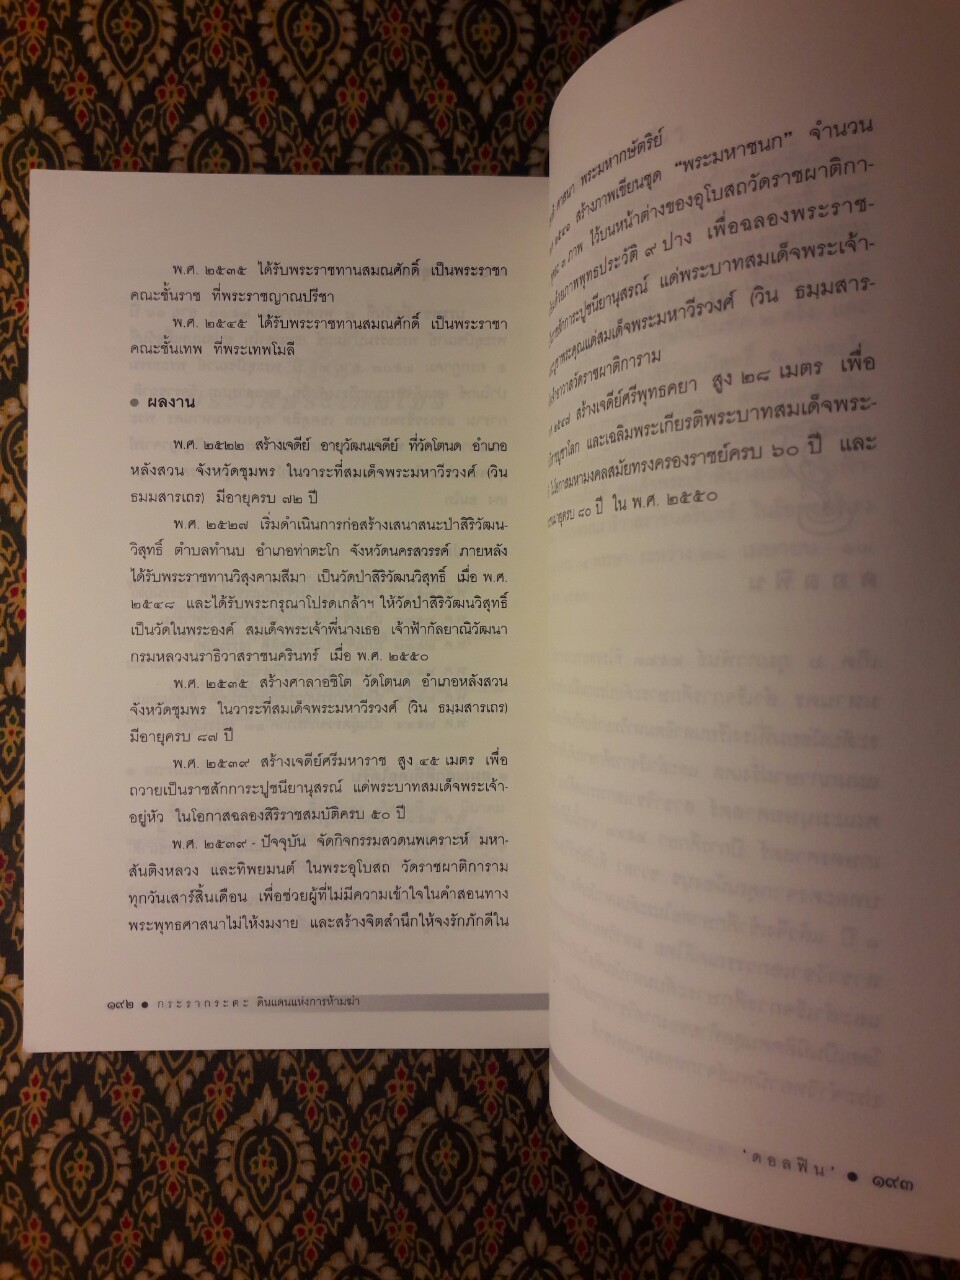 พ.ศ. ๒๕๓๕ ได้รับพระราชทานสมณศักดิ์ เป็นพระราชา
คณะชั้นราช ที่พระราชญาณปรีชา
พ.ศ. ๒๕๔๕ ได้รับพระราชทานสมณศักดิ์ เป็นพระราชา
คณะชั้นเทพ ที่พระเทพโมลี
● ผลงาน
พ.ศ. ๒๕๒๒ สร้างเจดีย์ อายุวัฒนเจดีย์ ที่วัดโตนด อำเภอ
หลังสวน จังหวัดชุมพร ในวาระที่สมเด็จพระมหาวีรวงศ์ (วิน
ธมมสารเถร) มีอายุครบ ๗๒ ปี
พ.ศ. ๒๕๒๗ เริ่มดำเนินการก่อสร้างเสนาสนะป่าสิริวัฒน-
วิสุทธิ์ ตำบลทำนบ อำเภอท่าตะโก จังหวัดนครสวรรค์ ภายหลัง
ได้รับพระราชทานวิสุงคามสีมา เป็นวัดป่าสิริวัฒนวิสุทธิ์ เมื่อ พ.ศ.
๒๕๔๘ และได้รับพระกรุณาโปรดเกล้าฯ ให้วัดป่าสิริวัฒนวิสุทธิ์
เป็นวัดในพระองค์ สมเด็จพระเจ้าพี่นางเธอ เจ้าฟ้ากัลยาณิวัฒนา
กรมหลวงนราธิวาสราชนครินทร์ เมื่อ พ.ศ. ๒๕๕๐
พ.ศ. ๒๕๓๕ สร้างศาลาอชิโต วัดโตนด อำเภอหลังสวน
จังหวัดชุมพร ในวาระที่สมเด็จพระมหาวีรวงศ์ (วิน ธมฺมสารเถร)
มีอายุครบ ๘๗ ปี
พ.ศ. ๒๕๓๙ สร้างเจดีย์ศรีมหาราช สูง ๔๕ เมตร เพื่อ
ถวายเป็นราชสักการะปูชนียานุสรณ์ แด่พระบาทสมเด็จพระเจ้า-
อยู่หัว ในโอกาสฉลองสิริราชสมบัติครบ ๕๐ ปี
พ.ศ. ๒๕๓๙ - ปัจจุบัน จัดกิจกรรมสวดนพเคราะห์ มหา-
สันติงหลวง และทิพยมนต์ ในพระอุโบสถ วัดราชผาติการาม
ทุกวันเสาร์สิ้นเดือน เพื่อช่วยผู้ที่ไม่มีความเข้าใจในคำสอนทาง
พระพุทธศาสนาไม่ให้งมงาย และสร้างจิตสำนึกให้จงรักภักดีใน
๑๙๒ ● กระรากระตะ ดินแดนแห่งการห้ามฆ่า
ศาสนา พระมหากษัตริย์
๒๕๔๐ สร้างภาพเขียนชุด "พระมหาชนก" จำนวน
ภาพ ไว้บนหน้าต่างของอุโบสถวัดราชผาติกา-
ภาพพุทธประวัติ ๙ ปาง เพื่อฉลองพระราช-
สักการะปูชนียานุสรณ์ แด่พระบาทสมเด็จพระเจ้า-
พระคุณแด่สมเด็จพระมหาวีรวงศ์ (วิน ธมฺมสาร-
วัดราชผาติการาม
๒๕๔๘ สร้างเจดีย์ศรีพุทธคยา สูง ๒๘ เมตร เพื่อ
และเฉลิมพระเกียรติพระบาทสมเด็จพระ-
โอกาสมหามงคลสมัยทรงครองราชย์ครบ ๖๐ ปี และ
ครบ ๘๐ ปี ใน พ.ศ. ๒๕๕๐
'ดอลฟิน' ● ๑๙๓